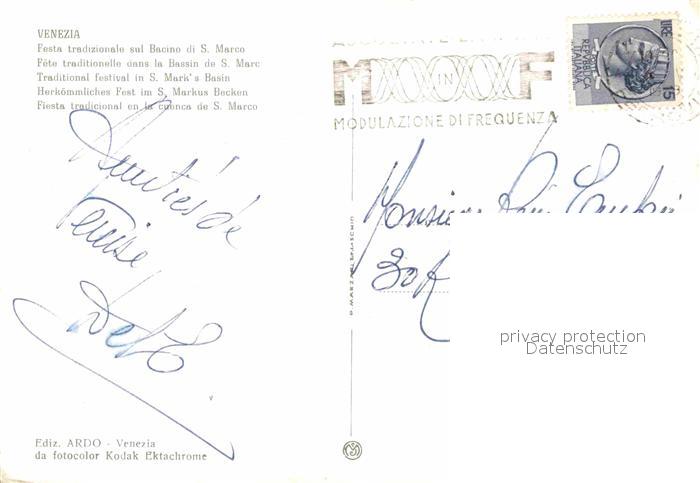 VENEZIA
Festa tradizionale sul Bacino di S. Marco
Fête traditionelle dans la Bassin de S. Marc
Traditional festival in S. Mark's Basin
Herkömmliches Fest im S. Markus Becken
Fiesta tradicional en la cuenca de S. Marco
Amitiés de
Venise
M IN F
MODULAZIONE DI FREQUENZA
LIRE 15
REPUBBLICA
ITALIANA
Monsieur
30
privacy protection
Datenschutz
Ediz. ARDO - Venezia
da fotocolor Kodak Ektachrome